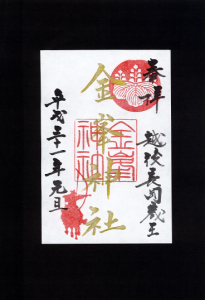 奉拝
越後長岡蔵王
金峯神社
平成三十一年元旦